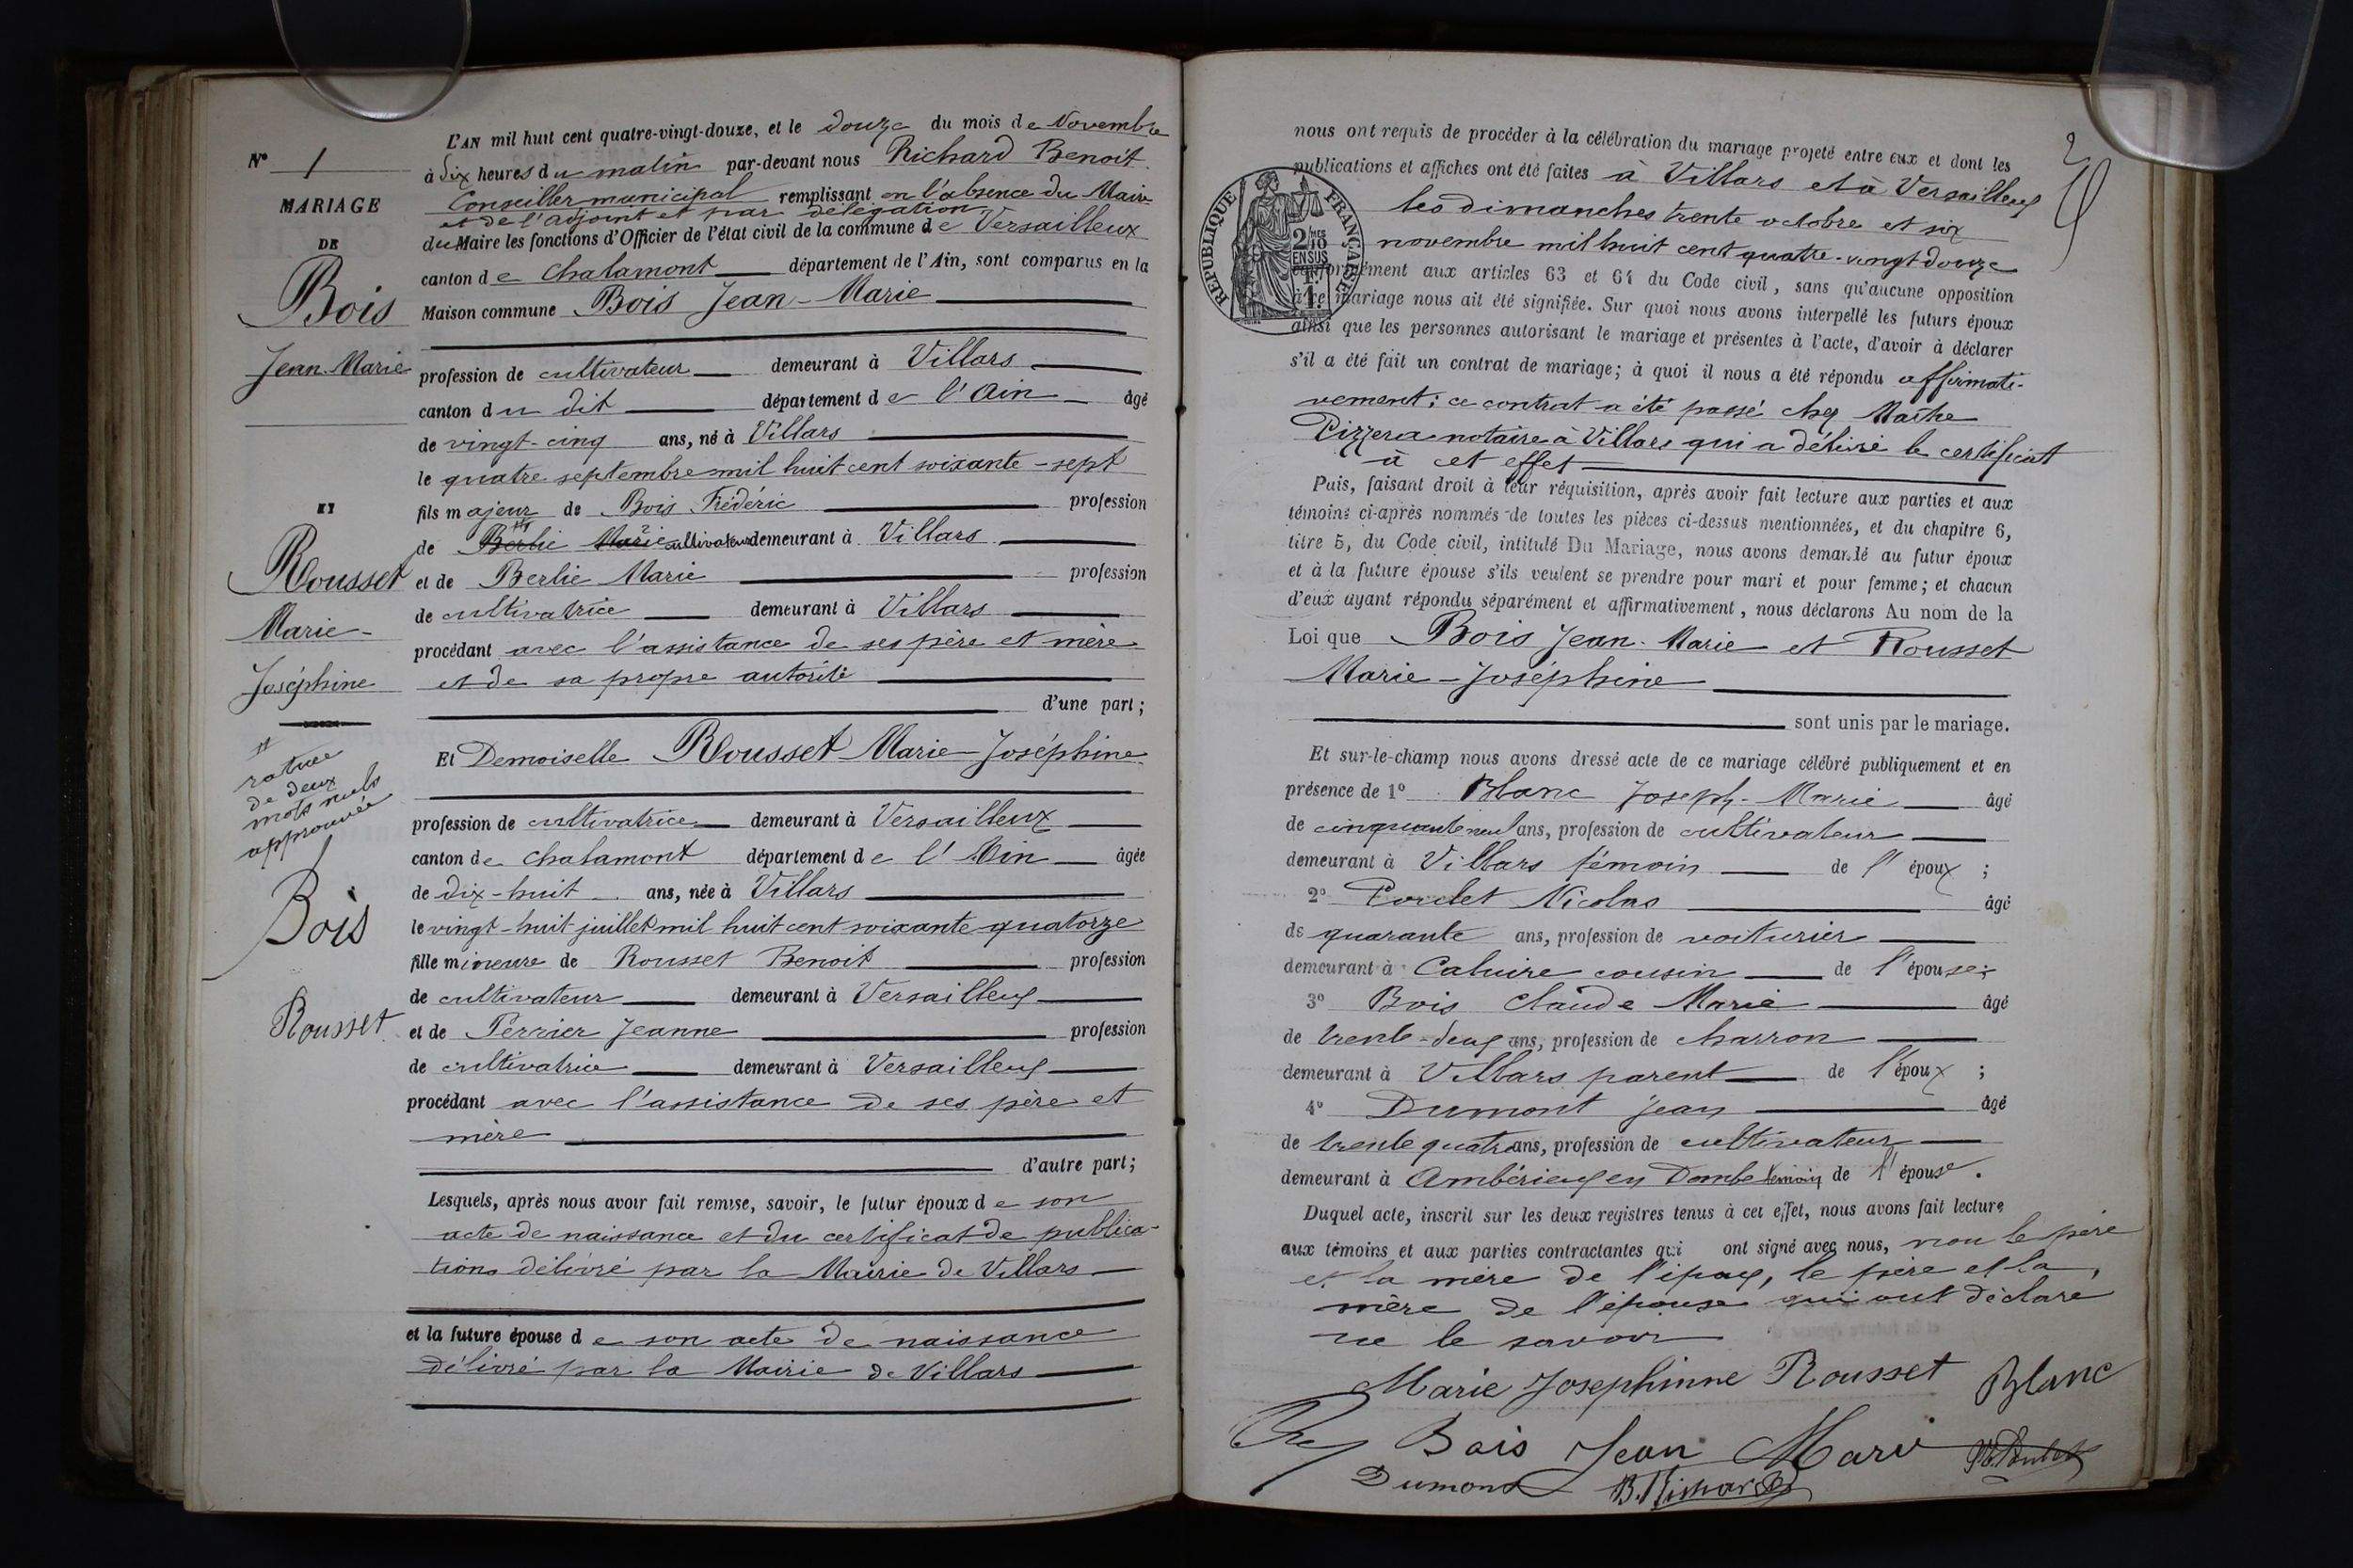 N° 1
MARIAGE
DE
Bois
Jean-Marie
ET
Rousset
Marie-
Joséphine
#
rature
de deux
mots nuls
approuvée
Bois
Rousset
L'AN mil huit cent quatre-vingt-douze, et le douze du mois de Novembre
à dix heures du matin par-devant nous Richard Benoit
Conseiller municipal remplissant en l'absence du Maire
et de l'adjoint et par délégation
du Maire les fonctions d'Officier de l'état civil de la commune de Versailleux
canton de Chalamont département de l'Ain, sont comparus en la
Maison commune Bois Jean-Marie
profession de cultivateur demeurant à Villars
canton du dit département de l'Ain âgé
de vingt-cinq ans, né à Villars
le quatre septembre mil huit cent soixante-sept
fils majeur de Bois Frédéric profession
de Berlie Marie cultivateur demeurant à Villars
et de Berlie Marie profession
de cultivatrice demeurant à Villars
procédant avec l'assistance de ses père et mère
et de sa propre autorité
d'une part;
Et Demoiselle Rousset Marie-Joséphine
profession de cultivatrice demeurant à Versailleux
canton de Chalamont département de l'Ain âgée
de dix-huit ans, née à Villars
le vingt-huit juillet mil huit cent soixante quatorze
fille mineure de Rousset Benoit profession
de cultivateur demeurant à Versailleux
et de Perrier Jeanne profession
de cultivatrice demeurant à Versailleux
procédant avec l'assistance de ses père et
mère
d'autre part;
Lesquels, après nous avoir fait remise, savoir, le futur époux de son
acte de naissance et du certificat de publica-
tions délivré par la Mairie de Villars
et la future épouse de son acte de naissance
délivré par la Mairie de Villars
2
nous ont requis de procéder à la célébration du mariage projeté entre eux et dont les
publications et affiches ont été faites à Villars et à Versailleux
les dimanches trente octobre et six
novembre mil huit cent quatre-vingt douze
REPUBLIQUE FRANÇAISE
2/10 EN SUS
conformément aux articles 63 et 64 du Code civil, sans qu'aucune opposition
à ce mariage nous ait été signifiée. Sur quoi nous avons interpellé les futurs époux
ainsi que les personnes autorisant le mariage et présentes à l'acte, d'avoir à déclarer
s'il a été fait un contrat de mariage; à quoi il nous a été répondu affirmati-
vement; ce contrat a été passé chez Maître
Pizzera notaire à Villars qui a délivré le certificat
à cet effet
Puis, faisant droit à leur réquisition, après avoir fait lecture aux parties et aux
témoins ci-après nommés de toutes les pièces ci-dessus mentionnées, et du chapitre 6,
titre 5, du Code civil, intitulé Du Mariage, nous avons demandé au futur époux
et à la future épouse s'ils veulent se prendre pour mari et pour femme; et chacun
d'eux ayant répondu séparément et affirmativement, nous déclarons Au nom de la
Loi que Bois Jean-Marie et Rousset
Marie-Joséphine
sont unis par le mariage.
Et sur-le-champ nous avons dressé acte de ce mariage célébré publiquement et en
présence de 1° Blanc Joseph-Marie âgé
de cinquante neuf ans, profession de cultivateur
demeurant à Villars témoin de l'époux ;
2° Nicolas âgé
de quarante ans, profession de voiturier
demeurant à Caluire cousin de l'épouse;
3° Bois Claude Marie âgé
de trente-deux ans, profession de charron
demeurant à Villars parent de l'époux ;
4° Dumont Jean âgé
de trente quatre ans, profession de cultivateur
demeurant à Ambérieux en Dombe témoin de l'épouse.
Duquel acte, inscrit sur les deux registres tenus à cet effet, nous avons fait lecture
aux témoins et aux parties contractantes qui ont signé avec nous, non le père
et la mère de l'époux, le père et la
mère de l'épouse qui ont déclaré
ne le savoir
Marie Josephinne Rousset Blanc
Bois Jean Mari
Dumont B. Richard